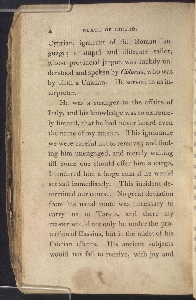 4 DEATH OF CICERO.
Cyprian, ignorant of the Roman lan-
guage; a stupid and illiterate sailor,
whose provincial jargon was luckily un-
derstood and spoken by Chlorus, who was
by birth a Cilician. He served us as in-
terpreter.
He was a stranger to the affairs of
Italy, and his knowledge was so extreme-
ly limited, that he had never heard even
the name of my master. This ignorance
we were careful not to remove; and find-
ing him unengaged, and merely waiting
till some one should offer him a cargo,
I tendered him a large sum if he would
set sail immediately. This incident de-
termined our course. No great deviation
from his usual route was necessary to
carry us to Tarsus, and there my
master would not only be under the pro-
tection of Cassius, but in the midst of his
Cilician clients. His ancient subjects
would not fail to receive, with joy and